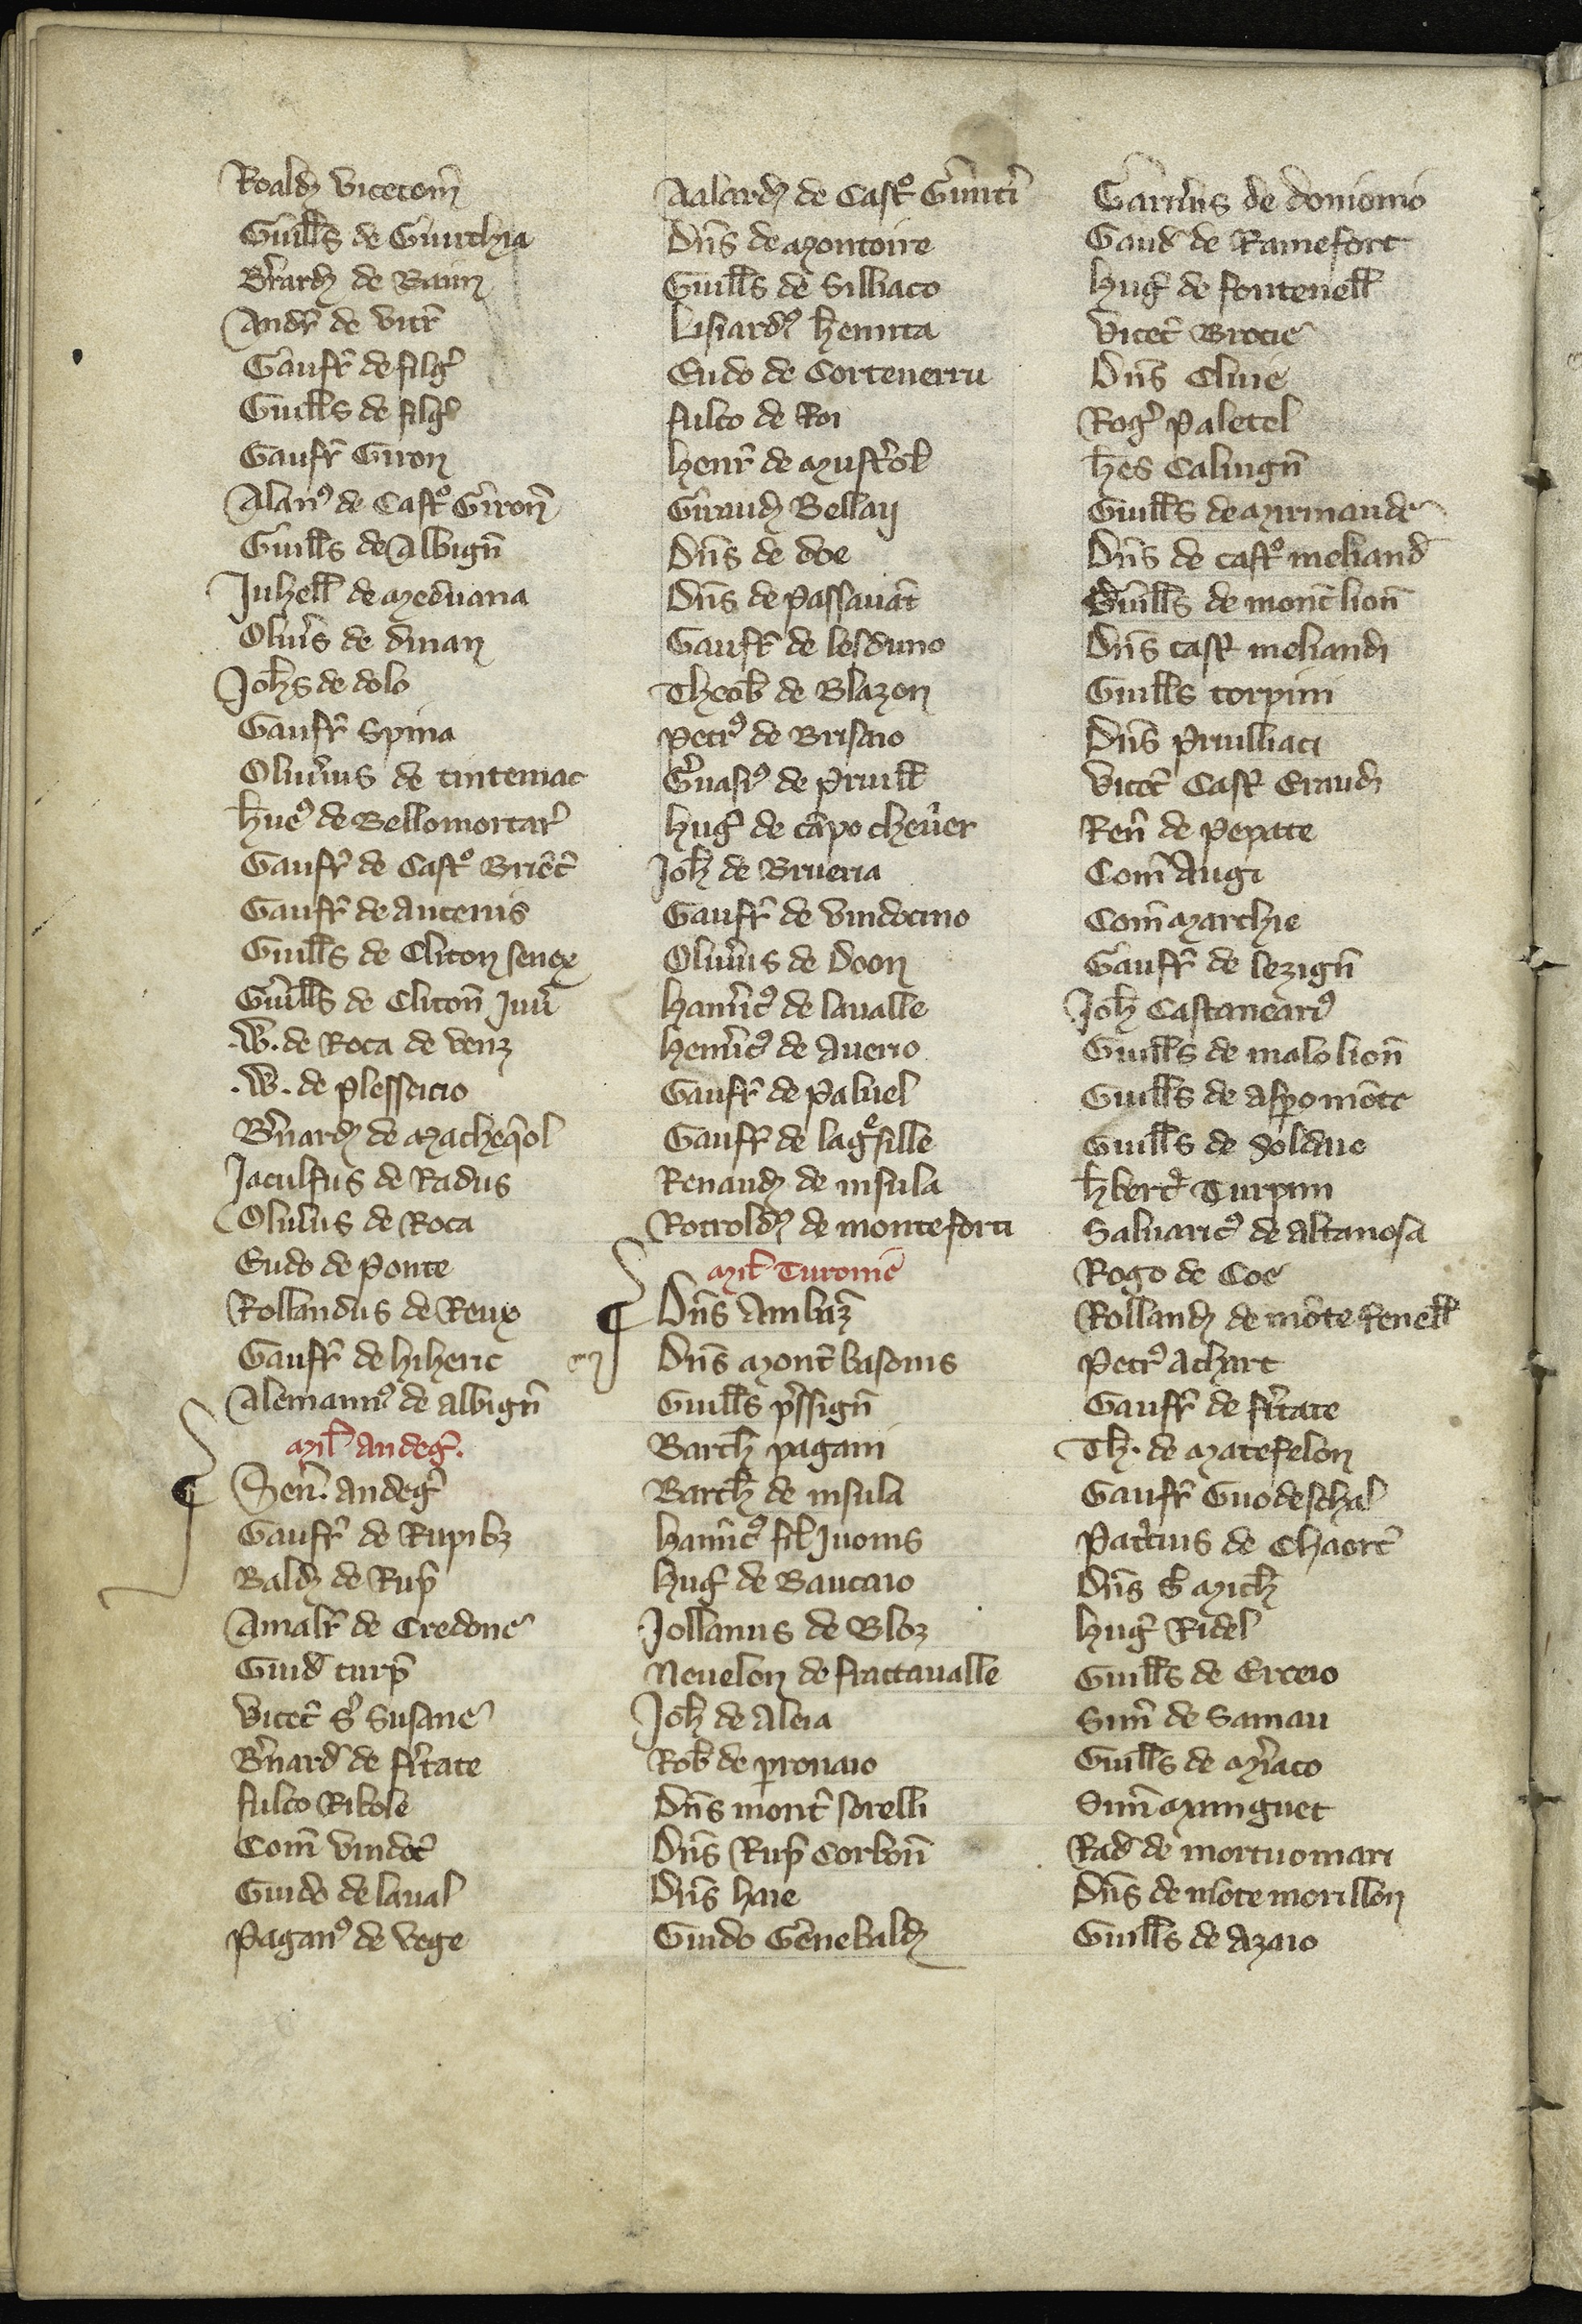 Roald₉ vicecom̃
Guill̃s de Guirchia
B̃rard₉ de Bain
Andr̃ de vitr̃
Gaufr̃ de filg̃
Guill̃s de filg̃
Gaufr̃ Giron
Alanꝰ de Castº Giron̄
Guill̃s de Albign̄
Juhell̃ de Meduana
Oliũs de dinan
Joh̃s de dolo
Gaufr̃ Spina
Oliũius de tinteniac
h̃ueꝰ de Bellomortar̃
Gaufr̃ de Castº Briẽt̃
Gaufr̃ de Ancenis
Guill̃s de Cliton senex
Guill̃s de Cliton̄ Juũ
.W. de Roca de venz
.W. de plesseicio
B̃nard₉ de Macheq̃ol
Jaculfus de Radus
Oliũus de Roca
Eudo de ponte
Rollandus de Reux
Gaufr̃ de hiheric
Alemannꝰ de albign̄
Mil̃ andeg̃.
Sen̄. andeg̃
Gaufr̃ de Rupibz
Bald₉ de Rup̃
Amalr̃ de Credone
Guid̃ turp̃
Vicec̃ S̃ Susane
B̃nard̃ de fr̃tate
fulco Ribole
Com̃ vindoc̃
Guido de laual
paganꝰ de vege
Aalard₉ de Castº Gũnti
Dñs de Montoire
Guill̃s de Silliaco
Lisiardꝰ h̃emita
Eudo de Cortenerru
fulco de Roi
henr̃ de Must̃ol̃
Giraud₉ Bellaij
Dñs de doe
Dñs de passauãt
Gaufr̃ de lesduno
Theob̃ de Blazon
petrꝰ de Brisaio
G̃uasiꝰ de pruill̃
hug̃ de cãpo cheũer
Joh̃ de Brueria
Gaufr̃ de vindocino
Oliũius de Doon
ham̃icꝰ de laualle
hem̃icꝰ de auerio
Gaufr̃ de paluel
Gaufr̃ de lag̃sille
Renaud₉ de insula
Rotroldꝰ de monteforti
Mil̃ Turonie
Dñs Ambaz̃
Dñs Mont̃ basonis
Guill̃s p̃ssign̄
Barth̃ pagani
Barth̃ de insula
ham̃icꝰ fil̃ Juonis
hug̃ de Baucaio
Jollanus de Bloz
Neuelon de fractaualle
Joh̃ de Aleia
Rob̃ de pronaio
Dñs mont̃ sorelli
Dñs Rup̃ Corbon̄
Dñs haie
Guido Gẽnebald₉
Garñius de donionio
Gaud̃ de Ramefort
hug̃ de fontenell̃
Vicec̃ Brocie
Dñs Cluie
Rog̃ paletel
h̃es Calugn̄
Guill̃s de Mirmande
Dñs de castº meliand̃
Guill̃s de mont̃ lion̄
Dñs cast̃ meliandi
Guill̃s torpini
Dñs pruilliaci
Vicec̃ Cast̃ Eraud₉
Ren̄ de pepate
Com̃ Augi
Com̃ Marchie
Gaufr̃ de lezign̄
Joh̃ Castaneariꝰ
Guill̃s de malolion̄
Guill̃s de asp̃omõte
Guill̃s de Solduo
h̃bert̃ Turpin
Saluaricꝰ de altanosa
Rogo de Coe
Rolland₉ de mõte Reuell̃
petrꝰ achart
Gaufr̃ de fr̃tate
Th̃. de Matefelon
Gaufr̃ Guodeschal
Pat̃cius de Chaorc̃
Dñs S̃ Mich̃
hug̃ Ridel
Guill̃s de Erceio
Sim̃ de Samau
Guill̃s de M̃iaco
Sim̃ Minguet
Rad̃ de mortuomari
Dñs de mõte morillon
Guill̃s de Azaio